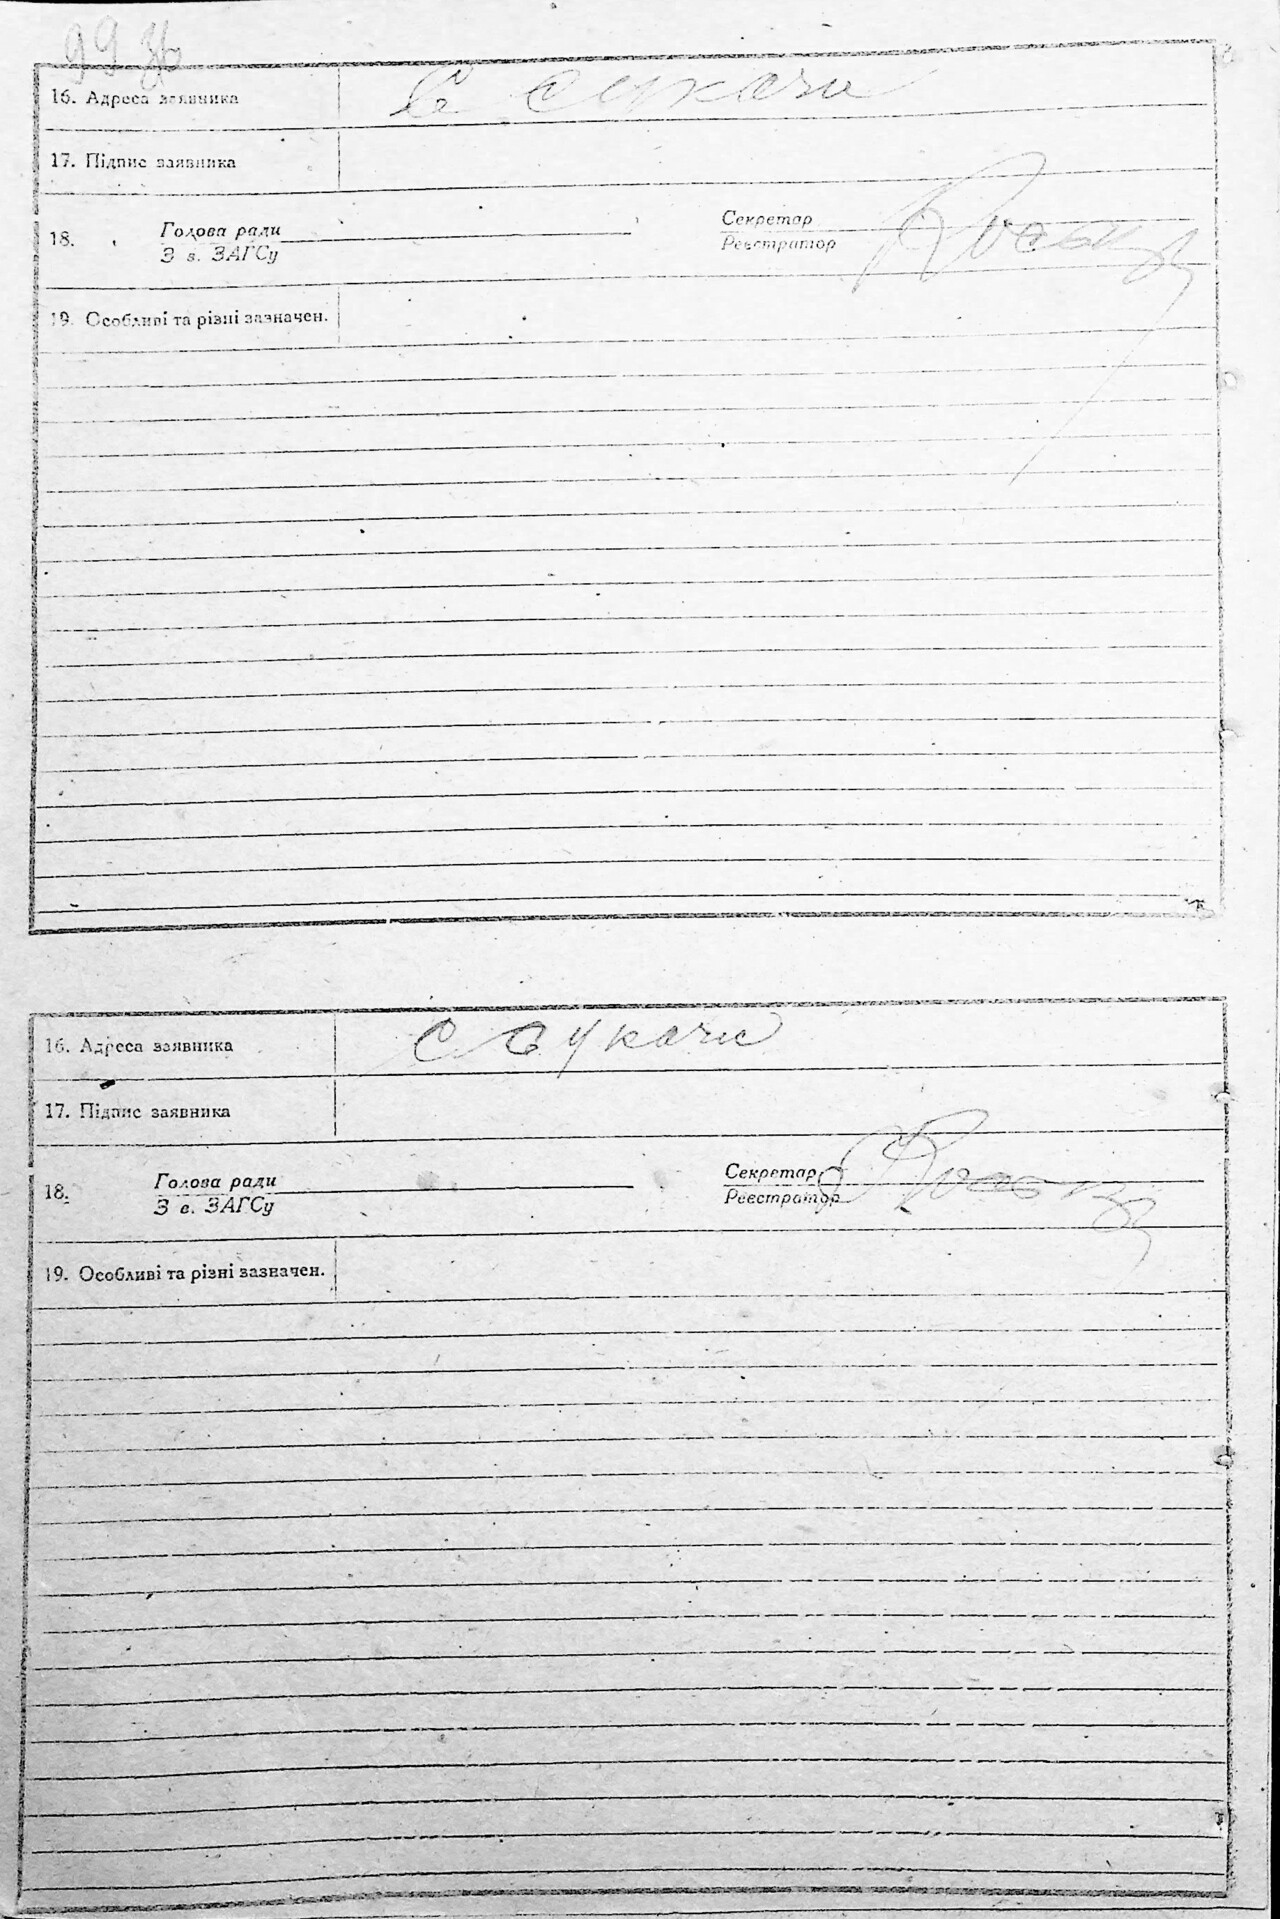 99 зв
16. Адреса заявника С Сукачи
17. Підпис заявника
18. Голова ради Секретар
З в. ЗАГСу Реєстратор
19. Особливі та різні зазначен.
16. Адреса заявника С Сукачи
17. Підпис заявника
18. Голова ради Секретар
З в. ЗАГСу Реєстратор
19. Особливі та різні зазначен.